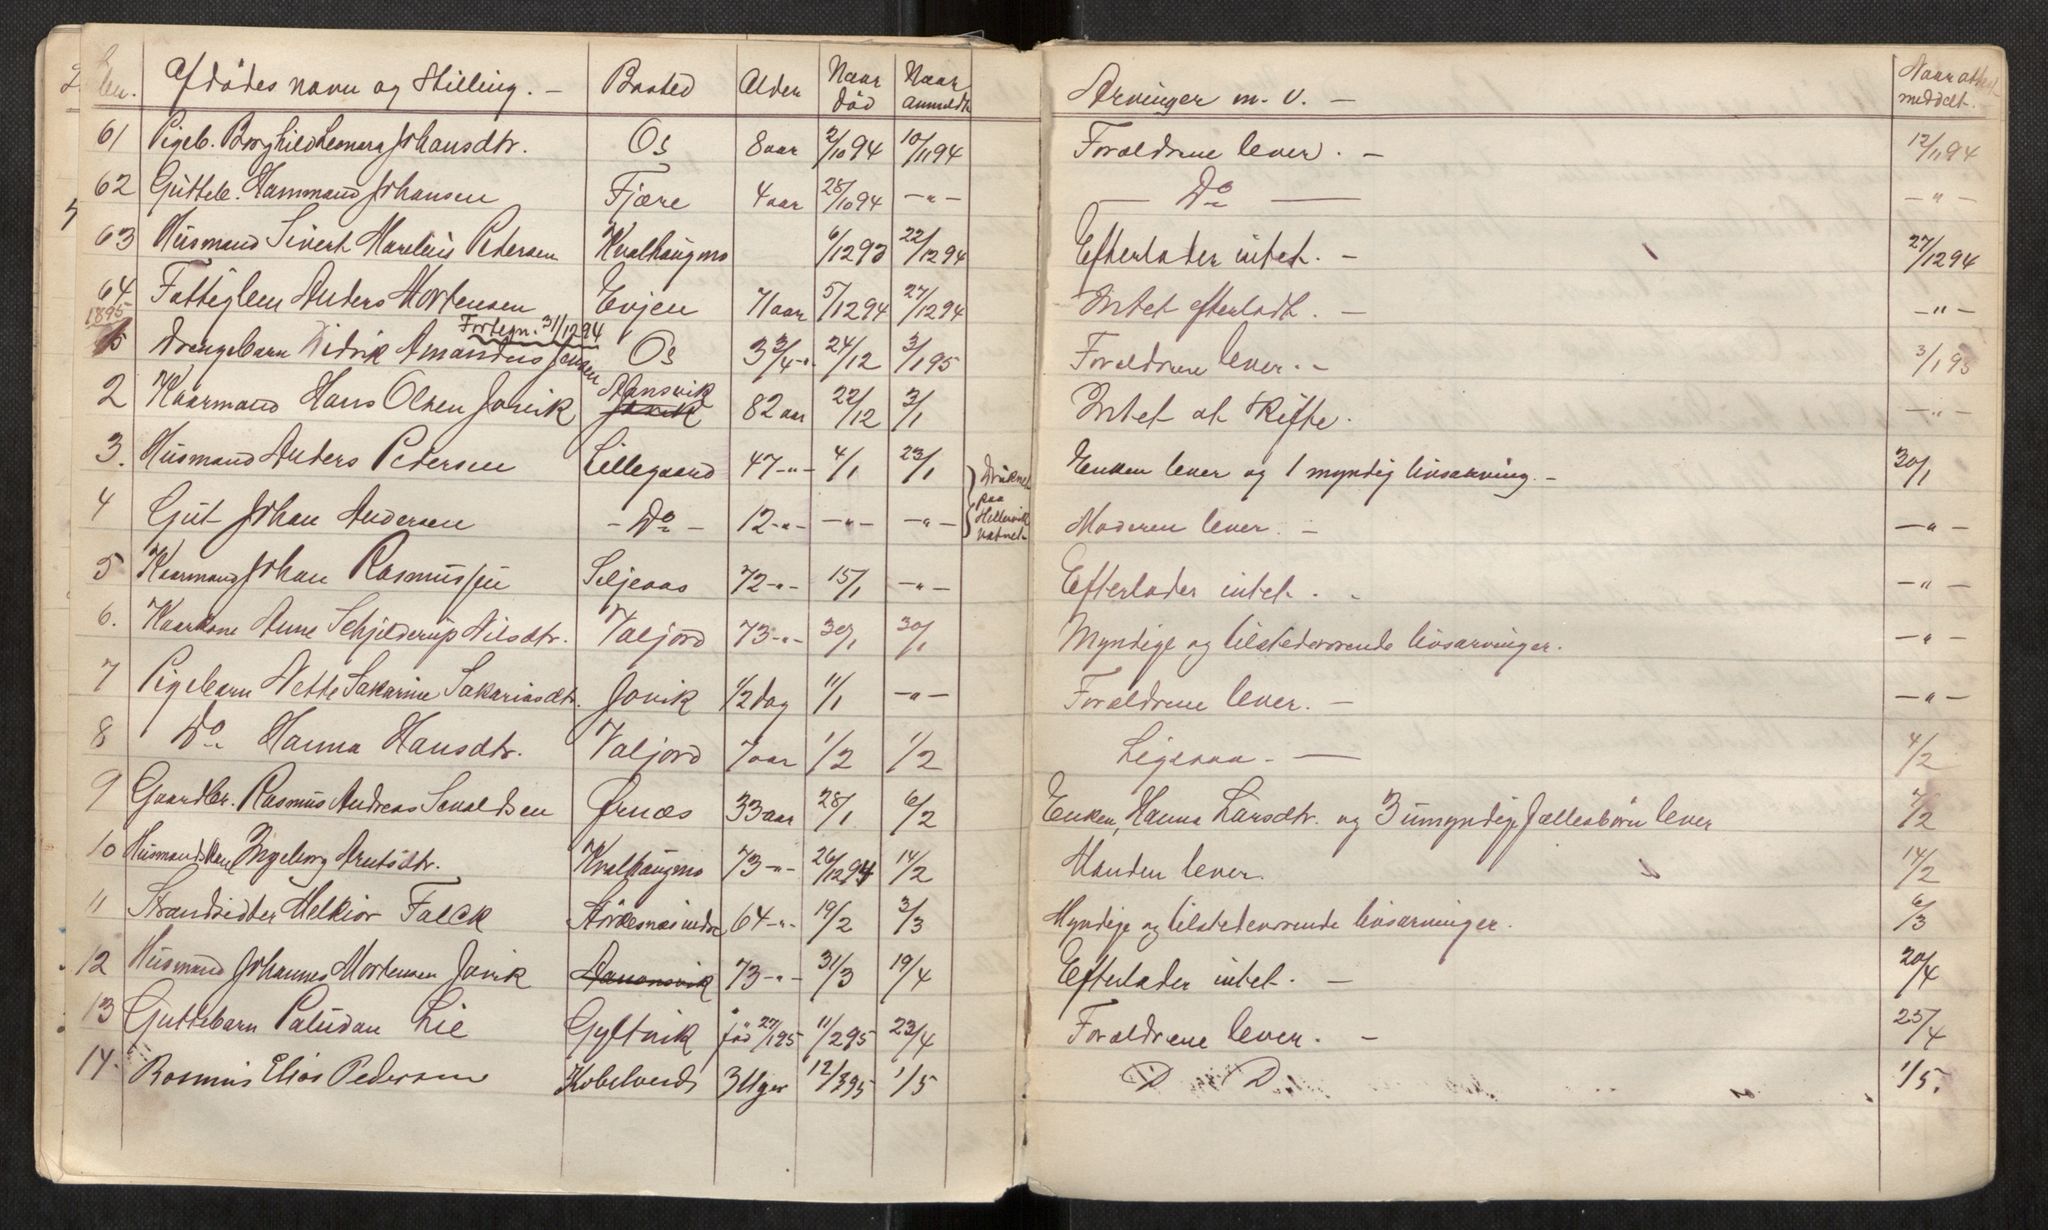 No. Afdødes navn og Stilling. – Bosted Alder Naar død Naar anmeldt Arvinger m. v. – Naar attest meddelt.
61 Pigeb. Borghild Leonora Johansdtr. Os 8 aar 2/10 94 10/11 94 Forældrene lever. – 12/11 94
62 Gutteb. Hammond Johansen Fjære 4 aar 28/10 94 –"– – Do – –"–
63 Husmand Sivert Marelius Pedersen Kvalhaugmo 6/12 93 22/12 94 Efterlader intet. – 27/12 94
64 Fattiglem Anders Mortensen Evjen 71 aar 5/12 94 27/12 94 Intet efterladt. – –"–
1895 Fortegn. 31/12 94
Drengebarn Didrik Amandus Jensen Os 3 3/4 –"– 24/12 3/1 95 Forældrene lever. – 3/1 95
2 Kaarmand Hans Olsen Jovik Hansvik Jovik 82 aar 22/12 3/1 Intet at skifte. –"–
3. Husmand Anders Pedersen Lillegaard 47 –"– 4/1 23/1 Enken lever og 1 myndig livsarving. – 30/1
Druknet paa Hellervik vatnet
4 Gut Johan Andersen – Do – 12 –"– –"– –"– Moderen lever. – –"–
5 Kaarmand Johan Rasmussen Seljeaas 72 –"– 15/1 –"– Efterlader intet. –"–
6. Kaarkone Anne Schjelderup Nilsdtr. Valjord 73 –"– 30/1 30/1 Myndige og tilstedeværende livsarvinger. –"–
7 Pigebarn Nette Sakarine Sakariasdtr. Jovik 1/2 dag 11/1 –"– Forældrene lever. – –"–
8 Do Hanna Hansdtr. Valjord 7 aar 1/2 1/2 Ligesaa. – 4/2
9 Gaardbr. Rasmus Andreas Sevaldsen Ørnæs 33 aar 28/1 6/2 Enken, Hanna Larsdtr. og 3 umyndige fællesbørn lever 7/2
10 Husmandskone Ingeborg Arntsdtr. Kvalhaugmo 73 –"– 26/12 94 14/2 Manden lever. 14/2
11 Strandsidder Melkior Falck Størkesnæs indre 64 –"– 19/2 3/3 Myndige og tilstedeværende livsarvinger. 6/3
12 Husmand Johannes Mortensen Jovik 73 –"– 31/3 19/4 Efterlader intet. – 20/4
13 Guttebarn Paludan Lie Gyltvik fød 27/1 95 11/2 95 23/4 Forældrene lever. – 25/4
14. Rasmus Elias Pedersen Kobelverds 3 Uger 12/3 95 1/5 D D 1/5.